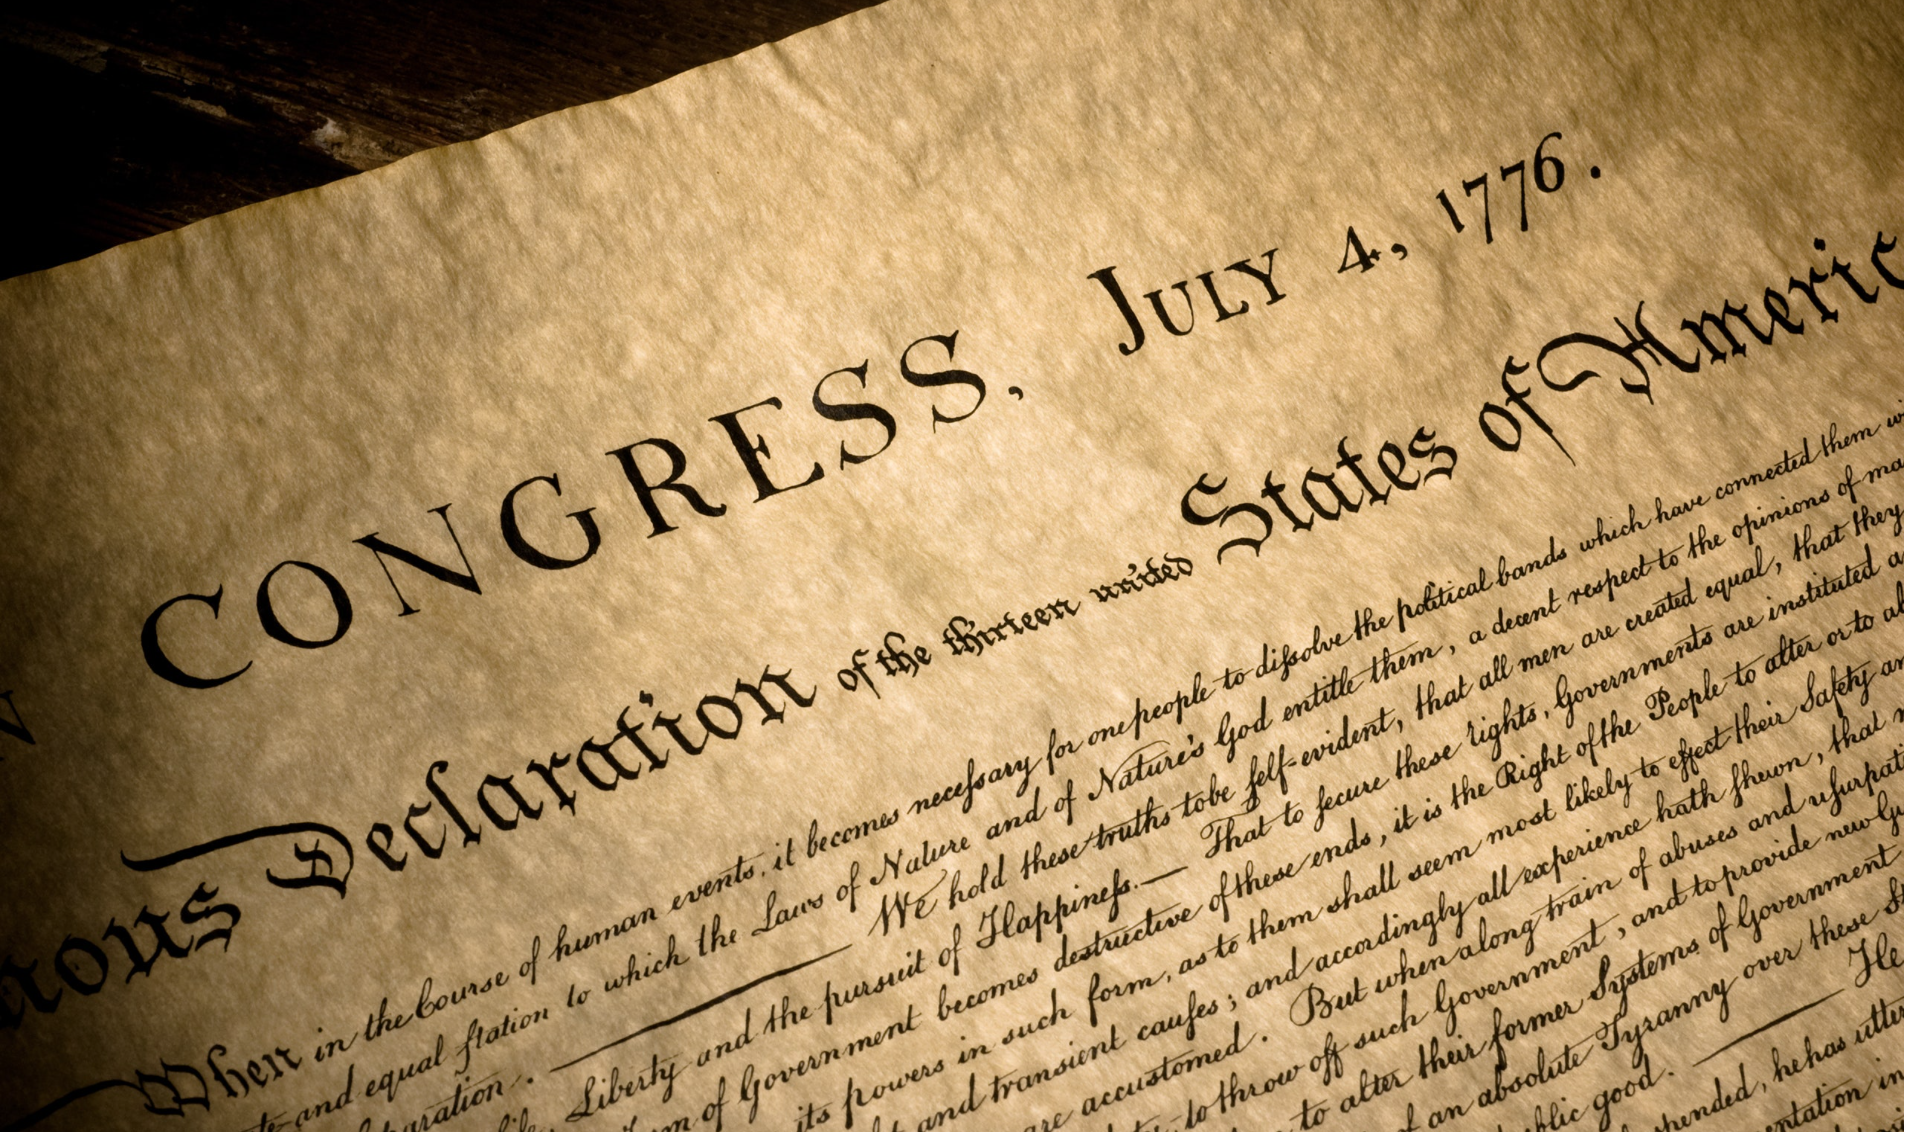 N CONGRESS, JULY 4, 1776.
mous Declaration of the thirteen united States of Americ
When in the Course of human events, it becomes neceſsary for one people to diſsolve the political bands which have connected them wi
te and equal ſtation to which the Laws of Nature and of Nature's God entitle them, a decent respect to the opinions of ma
paration. — We hold these truths to be ſelf-evident, that all men are created equal, that they
Life, Liberty and the pursuit of Happineſs.— That to ſecure these rights, Governments are instituted a
rm of Government becomes destructive of these ends, it is the Right of the People to alter or to ab
its powers in such form, as to them shall seem most likely to effect their Safety an
and transient cauſes; and accordingly all experience hath ſhewn, that
are accustomed. But when a long train of abuses and uſurpati
to throw off such Government, and to provide new Gu
to alter their former Systems of Government
of an absolute Tyranny over these St
blic good. — He
pended, he has utter
entation in